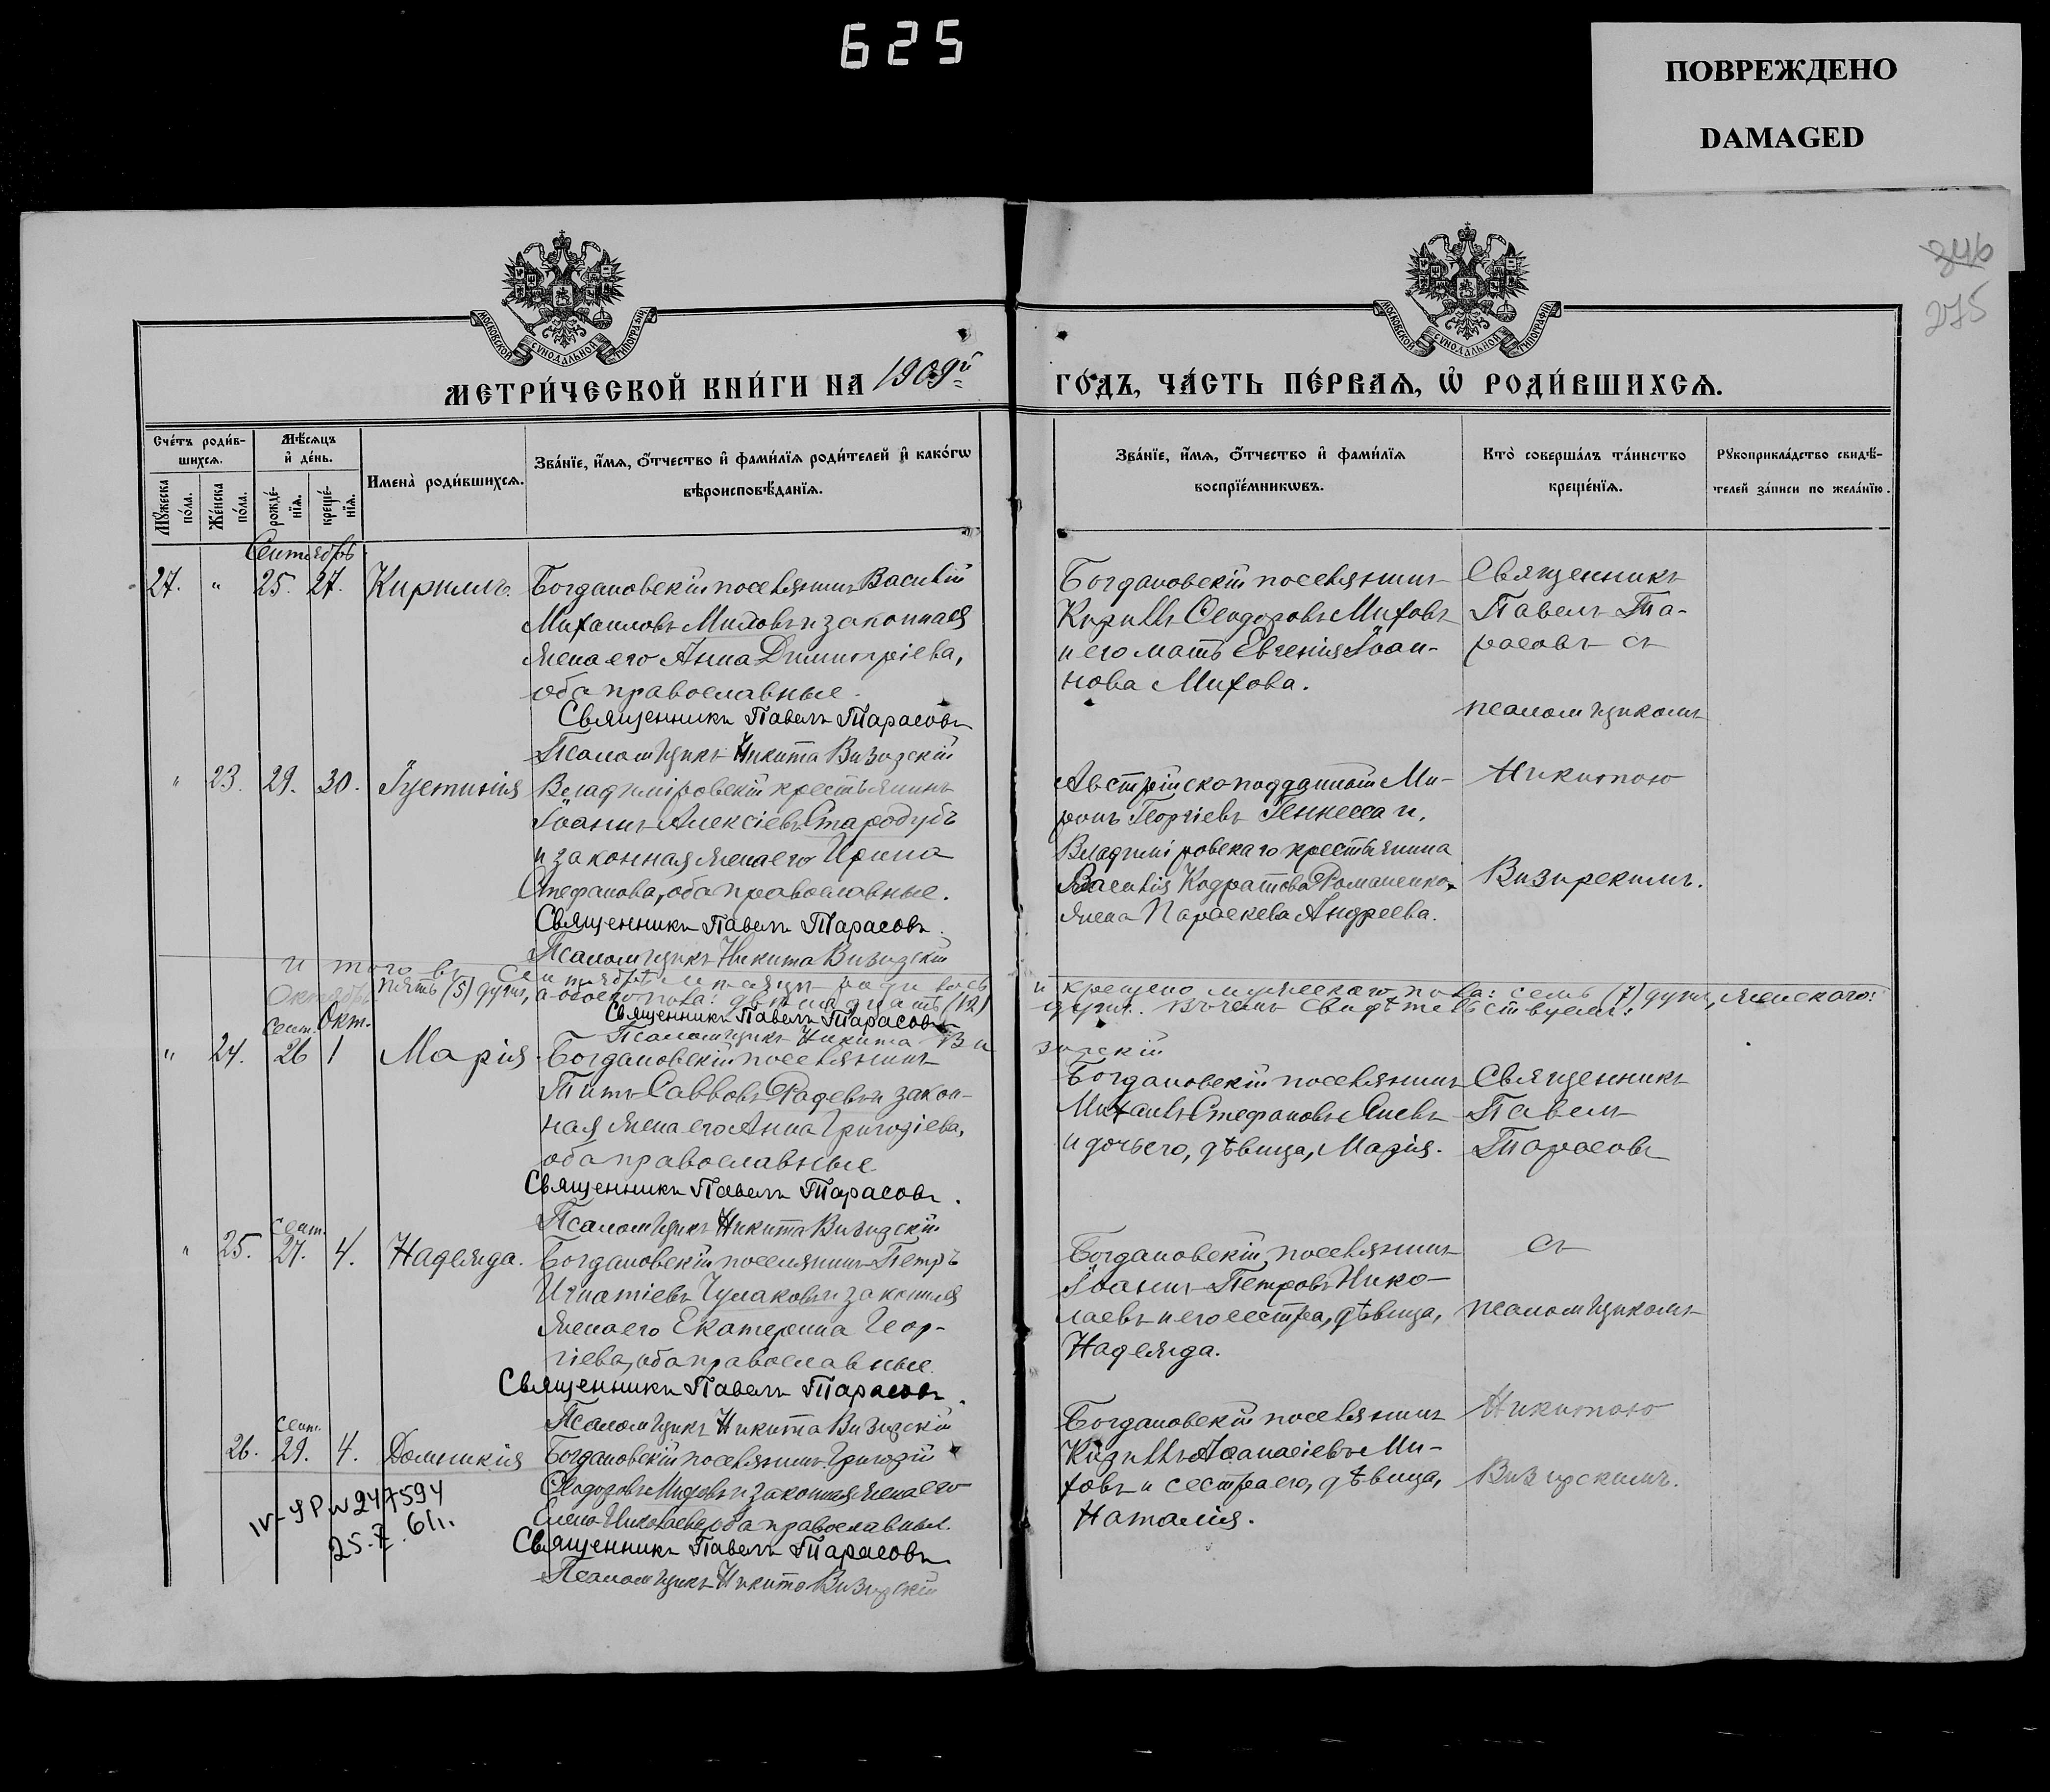 625
ПОВРЕЖДЕНО
DAMAGED
346
275
МОСКОВСКОЙ СУНОДАЛЬНОЙ ТИПОГРАФІИ
МОСКОВСКОЙ СУНОДАЛЬНОЙ ТИПОГРАФІИ
МЕТРИ́ЧЕСКОЙ КНИ́ГИ НА 1909й
ГО́ДЪ, ЧА́СТЬ ПЕ́РВАѦ, Ѡ҆ РОДИ́ВШИХСѦ.
Сче́тъ роди́в-
шихсѧ.
Мѣ́сѧцъ
и҆ де́нь.
Мꙋ́жеска
по́ла.
Же́нска
по́ла.
рожде́-
нїѧ.
креще́-
нїѧ.
Имена̀ роди́вшихсѧ.
Зва́нїе, и҆́мѧ, ѻ҆́тчество и҆ фами́лїѧ роди́телей и҆ како́гѡ
вѣроисповѣ́данїѧ.
Зва́нїе, и҆́мѧ, ѻ҆́тчество и҆ фами́лїѧ
воспрїе́мникѡвъ.
Кто̀ соверша́лъ та́инство
креще́нїѧ.
Рꙋкоприкла́дство свидѣ́-
телей за́писи по жела́нїю.
Сентябрь
27. " 25. 27. Кириллъ.
Богдановскій поселянинъ Василій
Михаиловъ Миховъ и законная
жена его Анна Димитріева,
оба православные.
Священникъ Павелъ Тарасовъ
Псаломщикъ Никита Визирскій
Богдановскій поселянинъ
Кириллъ Ѳеодоровъ Миховъ
и его мать Евгенія Іоан-
нова Михова.
Священникъ
Павелъ Та-
расовъ съ
псаломщикомъ
" 23. 29. 30. Іустинія
Владиміровскій крестьянинъ
Іоаннъ Алексіевъ Стародубъ
и законная жена его Ирина
Стефанова, оба православные.
Священникъ Павелъ Тарасовъ.
Псаломщикъ Никита Визирскій
Австрійско подданный Ми-
ронъ Георгіевъ и,
Владиміровскаго крестьянина
Василія Кодратова Романенко,
жена Параскева Андреева.
Никитою
Визирскимъ.
Итого въ Сентябрѣ мѣсяцѣ родилось и крещено мужескаго пола: семь (7) душъ, женскаго:
Октябрь пять (5) душъ, а обоего пола: двѣнадцать (12) душъ. Въ чемъ свидѣтельствуемъ:
Священникъ Павелъ Тарасовъ
Псаломщикъ Никита Визирскій
Сент. Окт.
" 24. 26 1 Марія.
Богдановскій поселянинъ
Титъ Саввовъ Радевъ и закон-
ная жена его Анна Григоріева,
оба православные
Священникъ Павелъ Тарасовъ.
Псаломщикъ Никита Визирскій
Богдановскій поселянинъ
Михаилъ Стефановъ Яневъ
и дочь его, дѣвица, Марія.
Священникъ
Павелъ
Тарасовъ
Сент.
" 25. 27. 4. Надежда.
Богдановскій поселянинъ Петръ
Игнатіевъ Чумаковъ и законная
жена его Екатерина Геор-
гіева, оба православные.
Священникъ Павелъ Тарасовъ.
Псаломщикъ Никита Визирскій
Богдановскій поселянинъ
Іоаннъ Петровъ Нико-
лаевъ и его сестра, дѣвица,
Надежда.
съ
псаломщикомъ
Сент.
26. 29. 4. Домникія
Богдановскій поселянинъ Григорій
Ѳеодоровъ Миховъ и законная жена его
Елена Николаева, оба православные.
Священникъ Павелъ Тарасовъ.
Псаломщикъ Никита Визирскій
Богдановскій поселянинъ
Кириллъ Аѳанасіевъ Ми-
ховъ и сестра его, дѣвица,
Наталія.
Никитою
Визирскимъ.
IV-ЯР № 247594
25.X.61г.